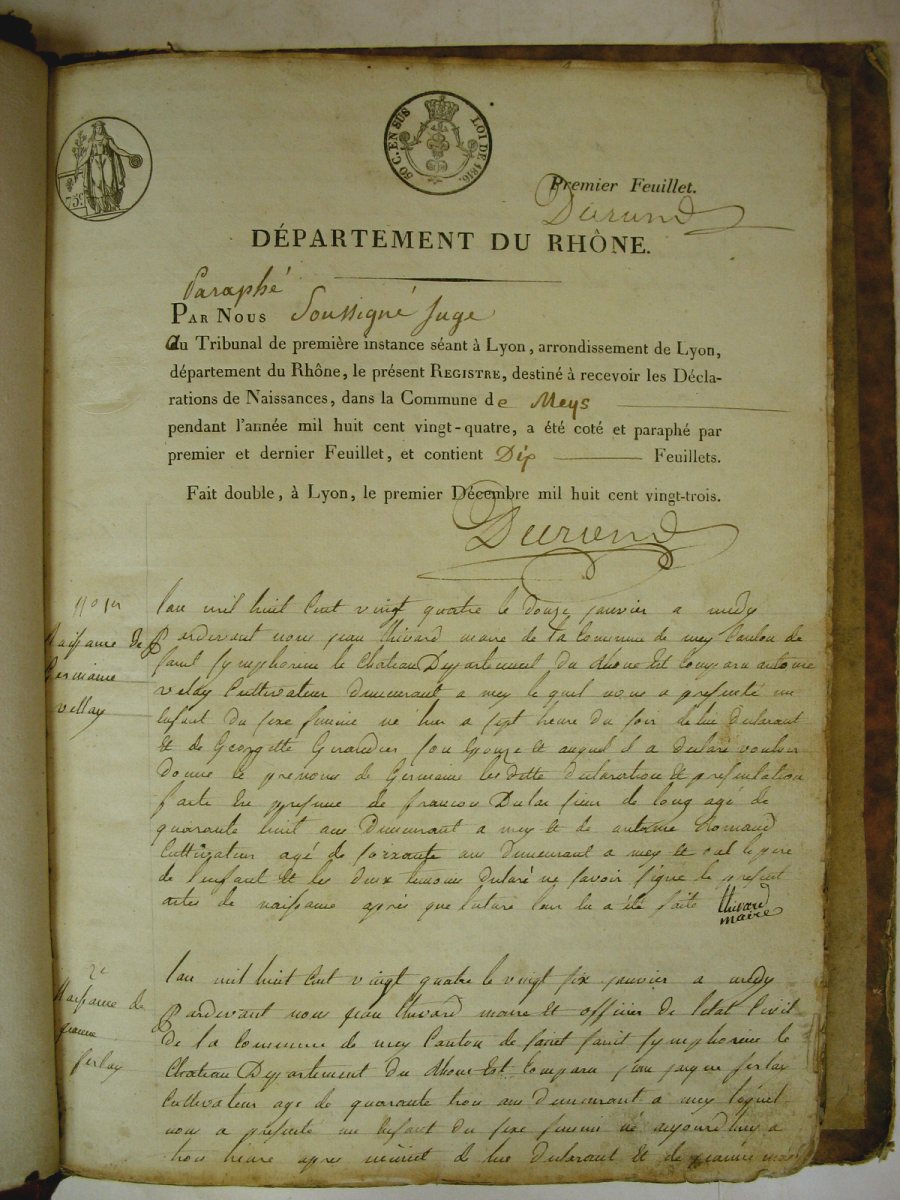 75c.
50 C. EN SUS LOI DE 1816.
Premier Feuillet.
Durand
DÉPARTEMENT DU RHÔNE.
Paraphé
PAR NOUS Soussigné Juge
au Tribunal de première instance séant à Lyon, arrondissement de Lyon,
département du Rhône, le présent REGISTRE, destiné à recevoir les Décla-
rations de Naissances, dans la Commune de Meys
pendant l'année mil huit cent vingt-quatre, a été coté et paraphé par
premier et dernier Feuillet, et contient Dix Feuillets.
Fait double, à Lyon, le premier Décembre mil huit cent vingt-trois.
Durand
Naissance de
Germaine
vellay
lan mil huit Cent vingt quatre le douze janvier a midy
Pardevant nous jean thivard maire de la Commune de mey Canton de
saint symphorien le Chateau Departement du Rhone Est Comparu antoine
velay Cultivateur demeurant a mey le quel nous a presenté un
Enfant du sexe feminin né hier a sept heure du soir de lui declarant
Et de Georgette Girardier son Epouze Et auquel il a declaré vouloir
donne le prenoms de Germaine les ditte declaration Et presentation
faite En presence de francois Dulac sieur de long agé de
quarante huit ans Demeurant a mey Et de antoine Romand
Cultivateur agé de soixante ans Demeurant a mey Et ont le pere
de l'enfant Et les deux temoins declaré ne savoir signe le present
actes de naissance après que lecture leur la a été faite thivard
maire
2e
Naissance de
ferlay
lan mil huit Cent vingt quatre le vingt six janvier a midy
Pardevant nous jean thivard maire Et officier de letat Civil
de la Commune de mey Canton de saint symphorien le
Chateau Departement du Rhone Est Comparu jean jaque ferlay
Cultivateur age de quarante trois ans Demeurant a mey lequel
nous a presenté un Enfant du sexe feminin né aujourdhuy a
heure apres minuit de lui declarant Et de